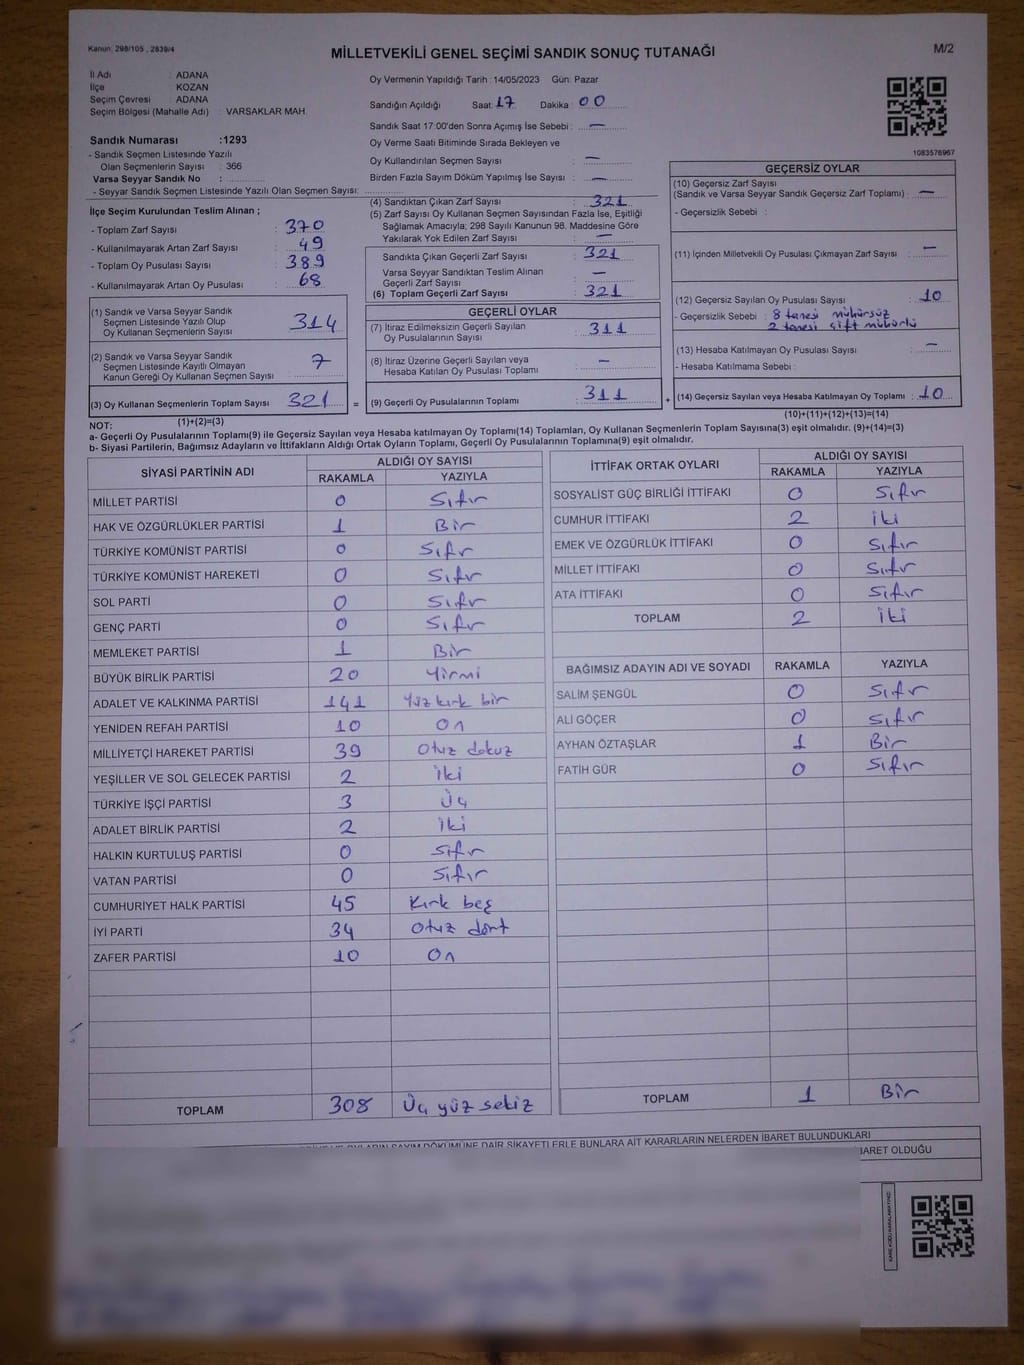 Kanun: 298/105 , 2839/4
MİLLETVEKİLİ GENEL SEÇİMİ SANDIK SONUÇ TUTANAĞI
M/2
İl Adı : ADANA
İlçe : KOZAN
Seçim Çevresi : ADANA
Seçim Bölgesi (Mahalle Adı) : VARSAKLAR MAH.
Sandık Numarası :1293
- Sandık Seçmen Listesinde Yazılı
Olan Seçmenlerin Sayısı : 366
Varsa Seyyar Sandık No :
- Seyyar Sandık Seçmen Listesinde Yazılı Olan Seçmen Sayısı:
Oy Vermenin Yapıldığı Tarih :14/05/2023 Gün: Pazar
Sandığın Açıldığı Saat: 17 Dakika : 00
Sandık Saat 17:00'den Sonra Açımış İse Sebebi : —
Oy Verme Saati Bitiminde Sırada Bekleyen ve
Oy Kullandırılan Seçmen Sayısı : —
Birden Fazla Sayım Döküm Yapılmış İse Sayısı : —
1083576967
İlçe Seçim Kurulundan Teslim Alınan ;
- Toplam Zarf Sayısı : 370
- Kullanılmayarak Artan Zarf Sayısı : 49
- Toplam Oy Pusulası Sayısı : 389
- Kullanılmayarak Artan Oy Pusulası : 68
(1) Sandık ve Varsa Seyyar Sandık
Seçmen Listesinde Yazılı Olup
Oy Kullanan Seçmenlerin Sayısı : 314
(2) Sandık ve Varsa Seyyar Sandık
Seçmen Listesinde Kayıtlı Olmayan
Kanun Gereği Oy Kullanan Seçmen Sayısı : 7
(3) Oy Kullanan Seçmenlerin Toplam Sayısı : 321 =
(1)+(2)=(3)
(4) Sandıktan Çıkan Zarf Sayısı : 321
(5) Zarf Sayısı Oy Kullanan Seçmen Sayısından Fazla İse, Eşitliği
Sağlamak Amacıyla; 298 Sayılı Kanunun 98. Maddesine Göre
Yakılarak Yok Edilen Zarf Sayısı : —
Sandıkta Çıkan Geçerli Zarf Sayısı : 321
Varsa Seyyar Sandıktan Teslim Alınan
Geçerli Zarf Sayısı : —
(6) Toplam Geçerli Zarf Sayısı : 321
GEÇERLİ OYLAR
(7) İtiraz Edilmeksizin Geçerli Sayılan
Oy Pusulalarının Sayısı : 311
(8) İtiraz Üzerine Geçerli Sayılan veya
Hesaba Katılan Oy Pusulası Toplamı : —
(9) Geçerli Oy Pusulalarının Toplamı : 311 +
GEÇERSİZ OYLAR
(10) Geçersiz Zarf Sayısı
(Sandık ve Varsa Seyyar Sandık Geçersiz Zarf Toplamı) : —
- Geçersizlik Sebebi :
(11) İçinden Milletvekili Oy Pusulası Çıkmayan Zarf Sayısı : —
(12) Geçersiz Sayılan Oy Pusulası Sayısı : 10
- Geçersizlik Sebebi : 8 tanesi mühürsüz
2 tanesi çift mühürlü
(13) Hesaba Katılmayan Oy Pusulası Sayısı : —
- Hesaba Katılmama Sebebi :
(14) Geçersiz Sayılan veya Hesaba Katılmayan Oy Toplamı : 10
(10)+(11)+(12)+(13)=(14)
NOT:
a- Geçerli Oy Pusulalarının Toplamı(9) ile Geçersiz Sayılan veya Hesaba katılmayan Oy Toplamı(14) Toplamları, Oy Kullanan Seçmenlerin Toplam Sayısına(3) eşit olmalıdır. (9)+(14)=(3)
b- Siyasi Partilerin, Bağımsız Adayların ve İttifakların Aldığı Ortak Oyların Toplamı, Geçerli Oy Pusulalarının Toplamına(9) eşit olmalıdır.
SİYASİ PARTİNİN ADI ALDIĞI OY SAYISI
RAKAMLA YAZIYLA
MİLLET PARTİSİ 0 Sıfır
HAK VE ÖZGÜRLÜKLER PARTİSİ 1 Bir
TÜRKİYE KOMÜNİST PARTİSİ 0 Sıfır
TÜRKİYE KOMÜNİST HAREKETİ 0 Sıfır
SOL PARTİ 0 Sıfır
GENÇ PARTİ 0 Sıfır
MEMLEKET PARTİSİ 1 Bir
BÜYÜK BİRLİK PARTİSİ 20 Yirmi
ADALET VE KALKINMA PARTİSİ 141 Yüz kırk bir
YENİDEN REFAH PARTİSİ 10 On
MİLLİYETÇİ HAREKET PARTİSİ 39 Otuz dokuz
YEŞİLLER VE SOL GELECEK PARTİSİ 2 İki
TÜRKİYE İŞÇİ PARTİSİ 3 Üç
ADALET BİRLİK PARTİSİ 2 İki
HALKIN KURTULUŞ PARTİSİ 0 Sıfır
VATAN PARTİSİ 0 Sıfır
CUMHURİYET HALK PARTİSİ 45 Kırk beş
İYİ PARTİ 34 Otuz dört
ZAFER PARTİSİ 10 On
TOPLAM 308 Üç yüz sekiz
İTTİFAK ORTAK OYLARI ALDIĞI OY SAYISI
RAKAMLA YAZIYLA
SOSYALİST GÜÇ BİRLİĞİ İTTİFAKI 0 Sıfır
CUMHUR İTTİFAKI 2 İki
EMEK VE ÖZGÜRLÜK İTTİFAKI 0 Sıfır
MİLLET İTTİFAKI 0 Sıfır
ATA İTTİFAKI 0 Sıfır
TOPLAM 2 İki
BAĞIMSIZ ADAYIN ADI VE SOYADI RAKAMLA YAZIYLA
SALİM ŞENGÜL 0 Sıfır
ALİ GÖÇER 0 Sıfır
AYHAN ÖZTAŞLAR 1 Bir
FATİH GÜR 0 Sıfır
TOPLAM 1 Bir
OYLARIN SAYIM DÖKÜMÜNE DAİR ŞİKAYETLERLE BUNLARA AİT KARARLARIN NELERDEN İBARET BULUNDUKLARI
İBARET OLDUĞU